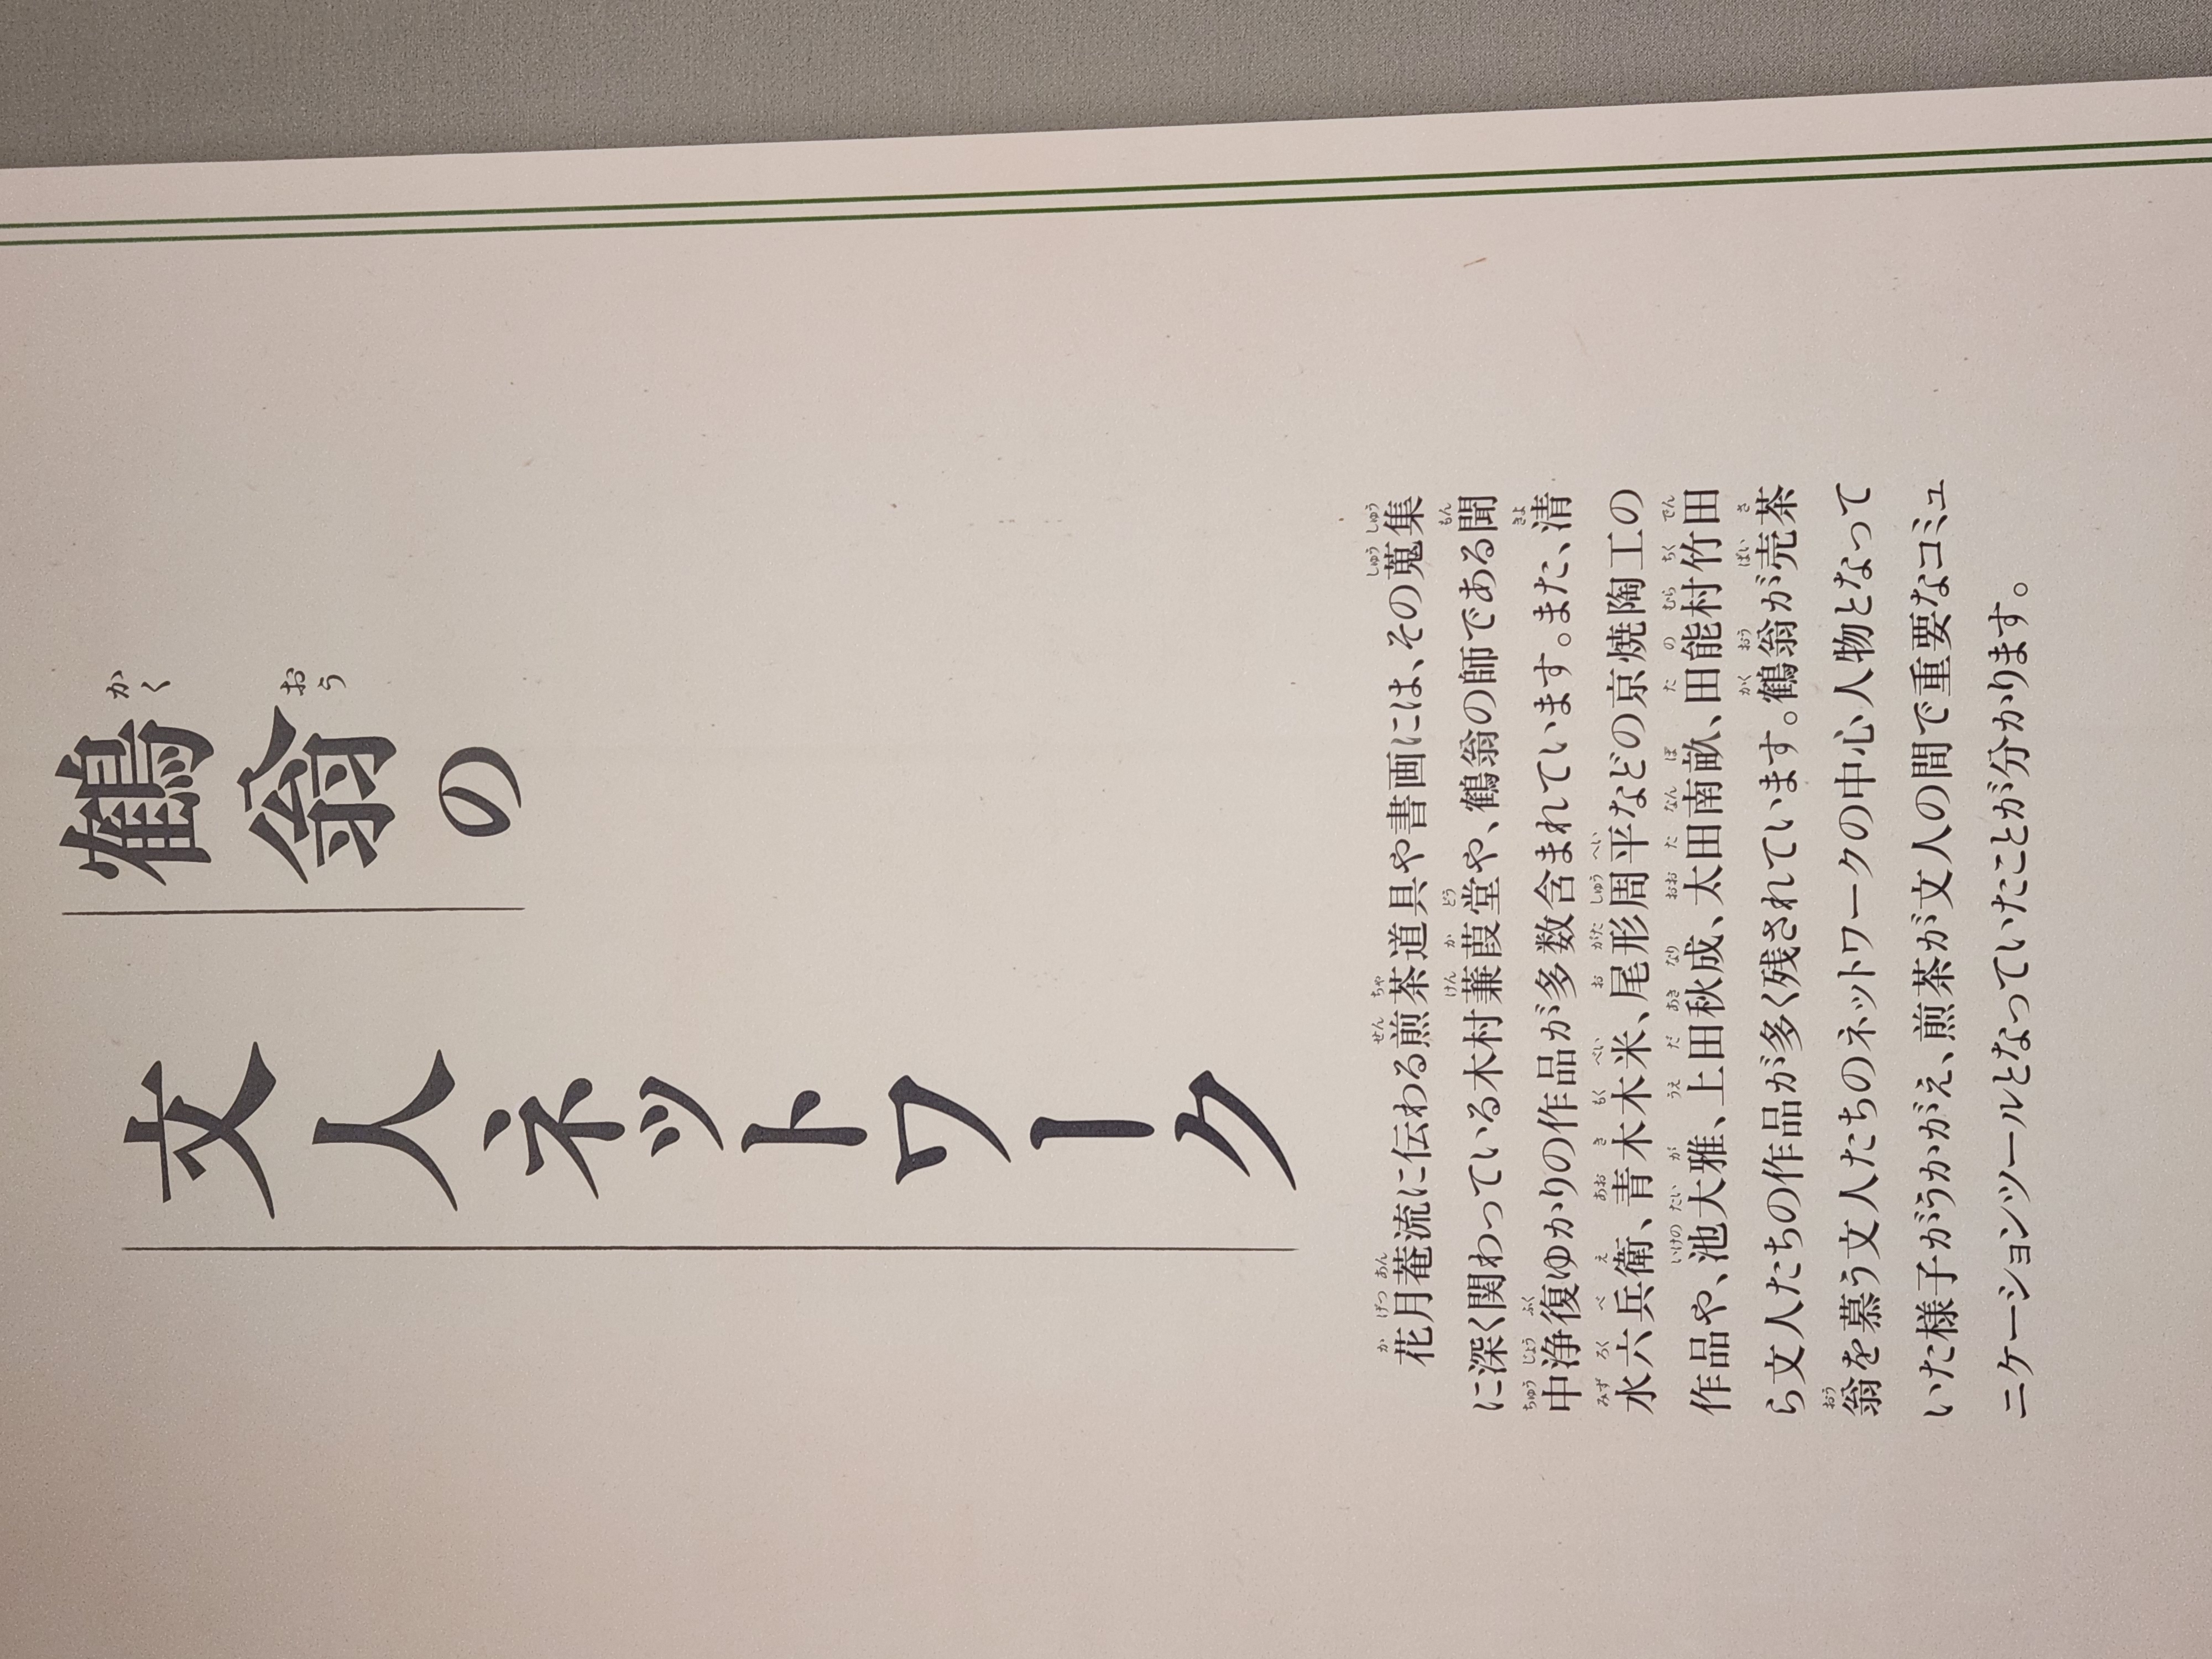 鶴翁の
文人ネットワーク
花月菴流に伝わる煎茶道具や書画には、その蒐集
に深く関わっている木村蒹葭堂や、鶴翁の師である聞
中浄復ゆかりの作品が多数含まれています。また、清
水六兵衛、青木木米、尾形周平などの京焼陶工の
作品や、池大雅、上田秋成、太田南畝、田能村竹田
ら文人たちの作品が多く残されています。鶴翁が売茶
翁を慕う文人たちのネットワークの中心人物となって
いた様子がうかがえ、煎茶が文人の間で重要なコミュ
ニケーションツールとなっていたことが分かります。